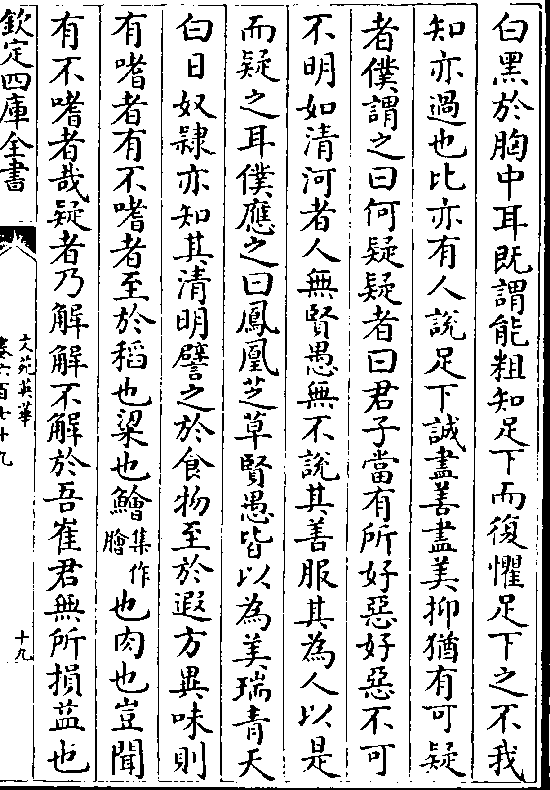 白黑於胸中耳既謂能粗知足下而復懼足下之不我
知亦過也比亦有人說足下誠盡善盡美抑猶有可疑
者僕謂之曰何疑疑者曰君子當有所好惡好惡不可
不明如清河者人無賢愚無不說其善服其為人以是
而疑之耳僕應之曰鳳凰芝草賢愚皆以為美瑞青天
白日奴隸亦知其清明譬之於食物至於遐方異味則
有嗜者有不嗜者至於稻也粱也鱠集作膾也肉也豈聞
有不嗜者哉疑者乃解解不解於吾崔君無所損益也
欽定四庫全書
文苑英華
卷六百七十九
十九